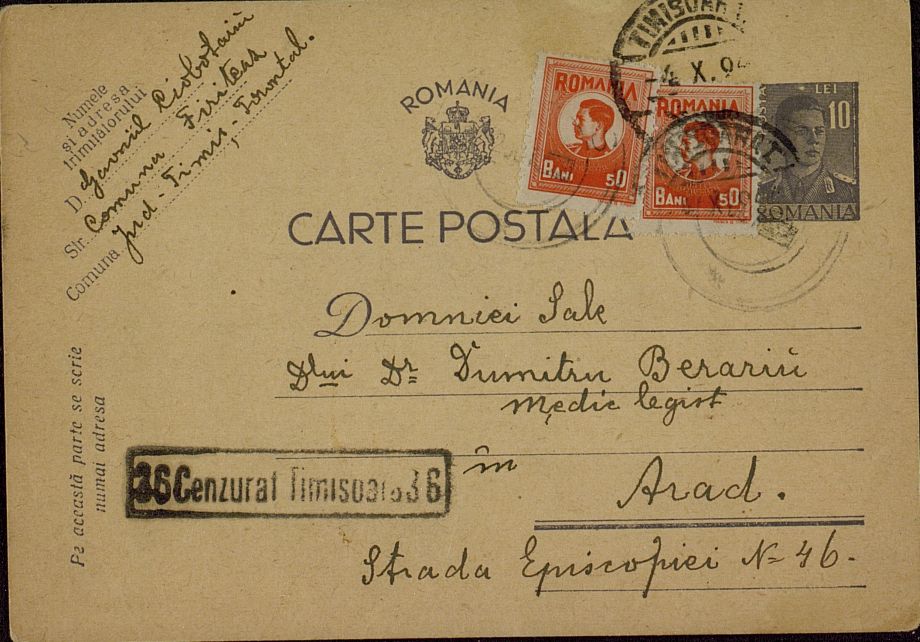 Numele
și adresa
trimițătorului
D. Gavril Ciobotariu
Str. Comuna Firiteaz
Comuna Jud-Timiș-Torontal.
ROMANIA
CARTE POSTALA
ROMANIA
BANI 50
ROMANIA
BANI 50
LEI 10
POSTA
ROMANIA
TIMISOARA
4 X. 94
Domniei Sale
Dlui Dr Dumitru Berariu
medic legist
în
Arad.
Strada Episcopiei No 46.-
36 Cenzurat Timisoara 36
Pe această parte se scrie
numai adresa